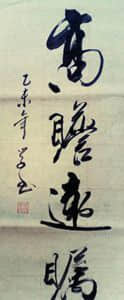 高瞻遠矚
乙未年